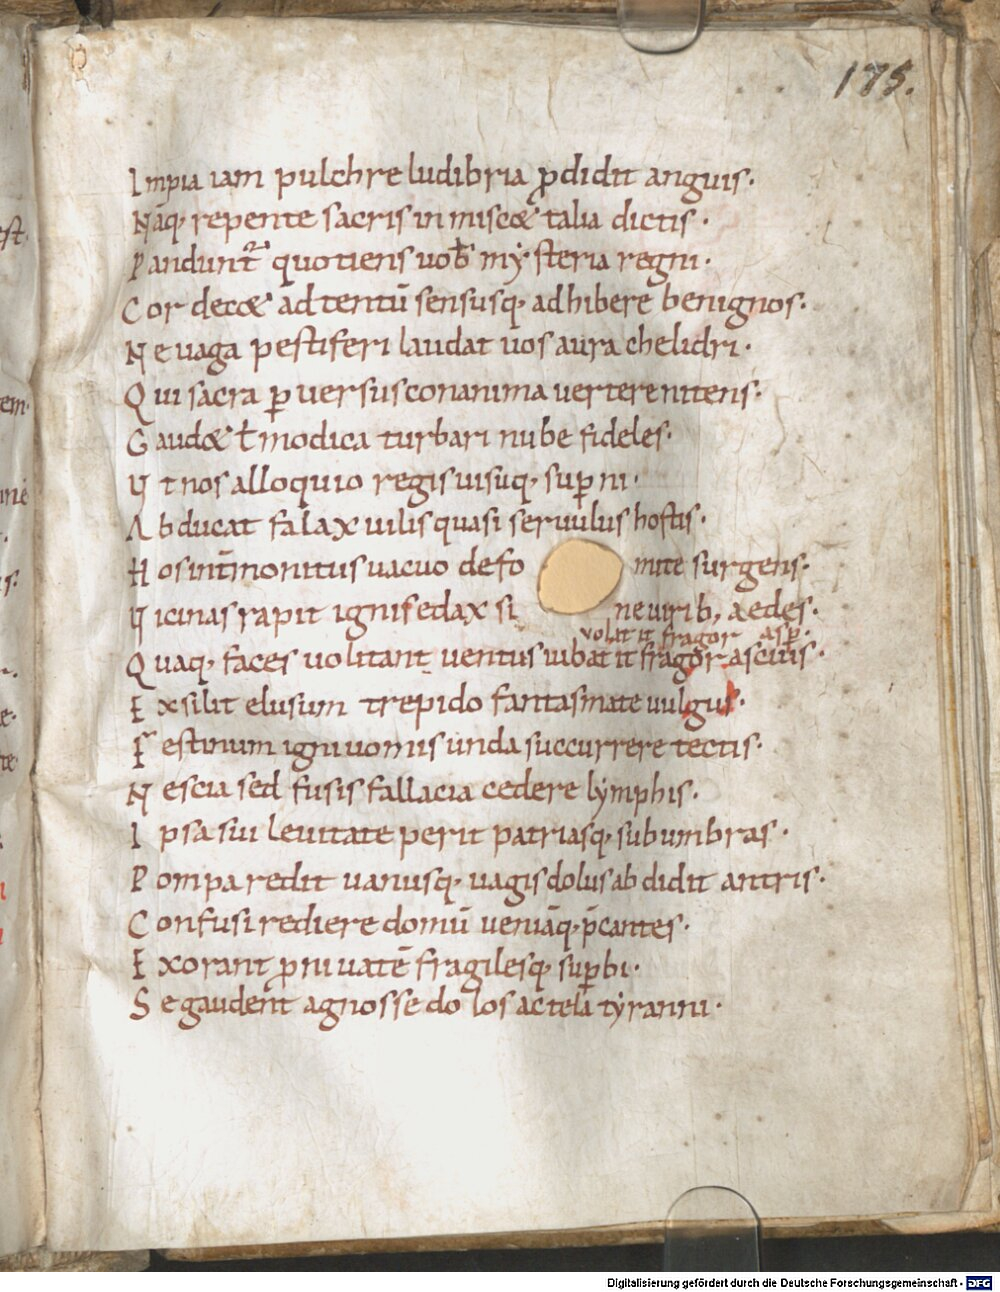 175.
Impia iam pulchre ludibria ꝓdidit anguis·
Nāq; repente sacris inmiscꝫ & talia dictis·
Pandunt᷑ quotiens uob̄ mẏsteria regni·
Cor dec& adtentū sensusq; adhibere benignos·
Ne uaga pestiferi laudat uos aura chelidri·
Qui sacra ꝑuersus conamina uertere nitens·
Gaud& t̄ modica turbari nube fideles·
Ut nos alloquio regis uisuq; suꝑni·
Abducat falax uilis quasi seruulus hostis·
Hos int̄ monitus uacuo de fo mite surgens·
Uicinas rapit ignis edax si ne uirib; aedes·
volat it fragor asꝑ·
Quaq; faces uolitant uentus iubat it fragor ascuus·
Exsilit elusum trepido fantasmate uulgus·
Festinum igniuomis unda succurrere tectis·
Nescia sed fusis fallacia cedere lẏmphis·
Ipsa sui leuitate perit patriasq; sub umbras·
Pompa redit uanusq; uagis dolus abdidit antris·
Confusi rediere domū ueniāq; p̄cantes·
Exorant ꝓni uatē fragilesq; suꝑbi·
Se gaudent agnosse dolos ac tela tẏranni·
Digitalisierung gefördert durch die Deutsche Forschungsgemeinschaft - DFG